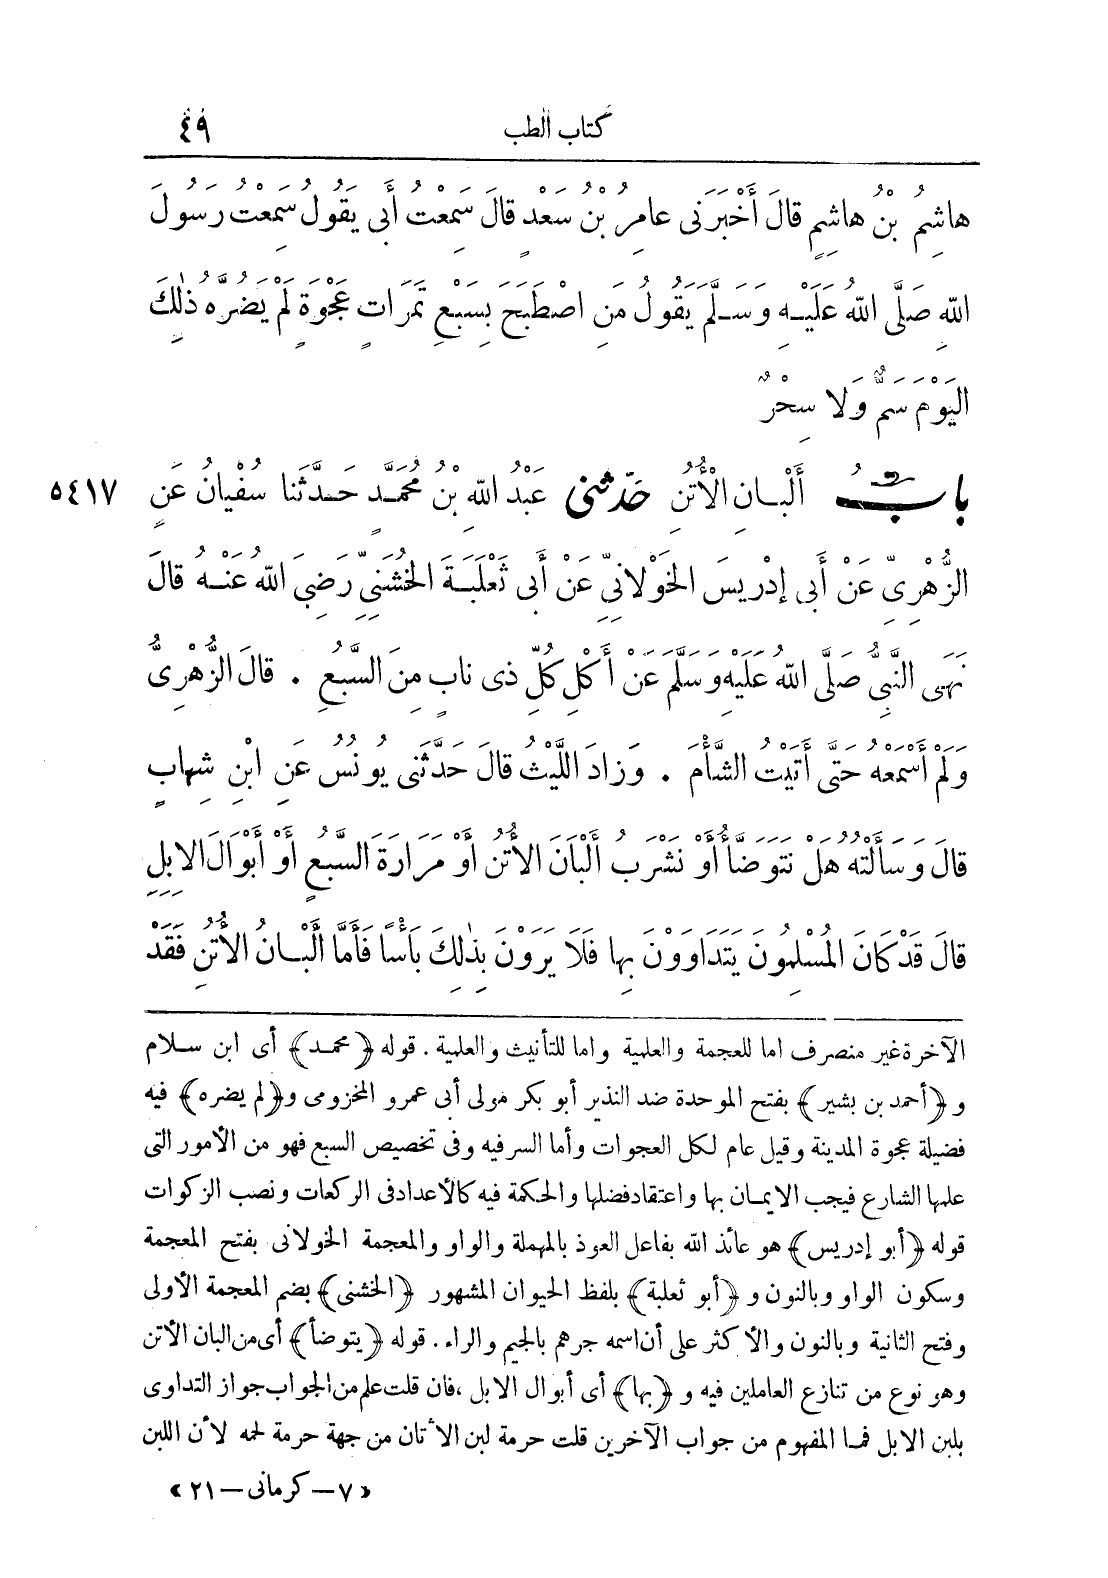 كتاب الطب ٤٩
هاشِمُ بْنُ هاشِمٍ قالَ أَخْبَرَنى عامِرُ بْنُ سَعْدٍ قالَ سَمِعْتُ أَبِى يَقُولُ سَمِعْتُ رَسُولَ
اللهِ صَلَّى اللهُ عَلَيْهِ وَسَلَّمَ يَقُولُ مَنِ اصْطَبَحَ بِسَبْعِ تَمَرَاتٍ عَجْوَةٍ لَمْ يَضُرَّهُ ذٰلِكَ
اليَوْمَ سَمٌّ وَلا سِحْرٌ
بابُ أَلْبانِ الْأُتُنِ حَدَّثَنِى عَبْدُ اللهِ بْنُ مُحَمَّدٍ حَدَّثَنا سُفْيانُ عَنِ ٥٤١٧
الزُّهْرِىِّ عَنْ أَبِى إِدْرِيسَ الخَوْلانِىِّ عَنْ أَبِى ثَعْلَبَةَ الخُشَنِىِّ رَضِىَ اللهُ عَنْهُ قالَ
نَهَى النَّبِىُّ صَلَّى اللهُ عَلَيْهِ وَسَلَّمَ عَنْ أَكْلِ كُلِّ ذِى نابٍ مِنَ السَّبُعِ . قالَ الزُّهْرِىُّ
وَلَمْ أَسْمَعْهُ حَتَّى أَتَيْتُ الشَّأْمَ . وَزادَ اللَّيْثُ قالَ حَدَّثَنِى يُونُسُ عَنِ ابْنِ شِهابٍ
قالَ وَسَأَلْتُهُ هَلْ نَتَوَضَّأُ أَوْ نَشْرَبُ أَلْبَانَ الأُتُنِ أَوْ مَرَارَةَ السَّبُعِ أَوْ أَبْوَالَ الاِبِلِ
قالَ قَدْ كَانَ المُسْلِمُونَ يَتَدَاوَوْنَ بِها فَلَا يَرَوْنَ بِذٰلِكَ بَأْسًا فَأَمَّا أَلْبانُ الأُتُنِ فَقَدْ
الآخرة غير منصرف اما للعجمة والعلمية واما للتأنيث والعلمية . قوله ﴿محمد﴾ أى ابن سلام
و ﴿أحمد بن بشير﴾ بفتح الموحدة ضد النذير أبو بكر مولى أبى عمرو المخزومى و﴿لم يضره﴾ فيه
فضيلة عجوة المدينة وقيل عام لكل العجوات وأما السر فيه وفى تخصيص السبع فهو من الأمور التى
علمها الشارع فيجب الايمان بها واعتقاد فضلها والحكمة فيه كالأعداد فى الركعات ونصب الزكوات
قوله ﴿أبو إدريس﴾ هو عائذ الله بفاعل العوذ بالمهملة والواو والمعجمة الخولانى بفتح المعجمة
وسكون الواو وبالنون و ﴿أبو ثعلبة﴾ بلفظ الحيوان المشهور ﴿الخشنى﴾ بضم المعجمة الأولى
وفتح الثانية وبالنون والأكثر على أن اسمه جرهم بالجيم والراء . قوله ﴿يتوضأ﴾ أى من البان الأتن
وهو نوع من تنازع العاملين فيه و ﴿بها﴾ أى أبوال الابل ،فان قلت علم من الجواب جواز التداوى
بلبن الابل فما المفهوم من جواب الآخرين قلت حرمة لبن الأتان من جهة حرمة لحمه لأن اللبن
«٧ – كرمانى – ٢١»